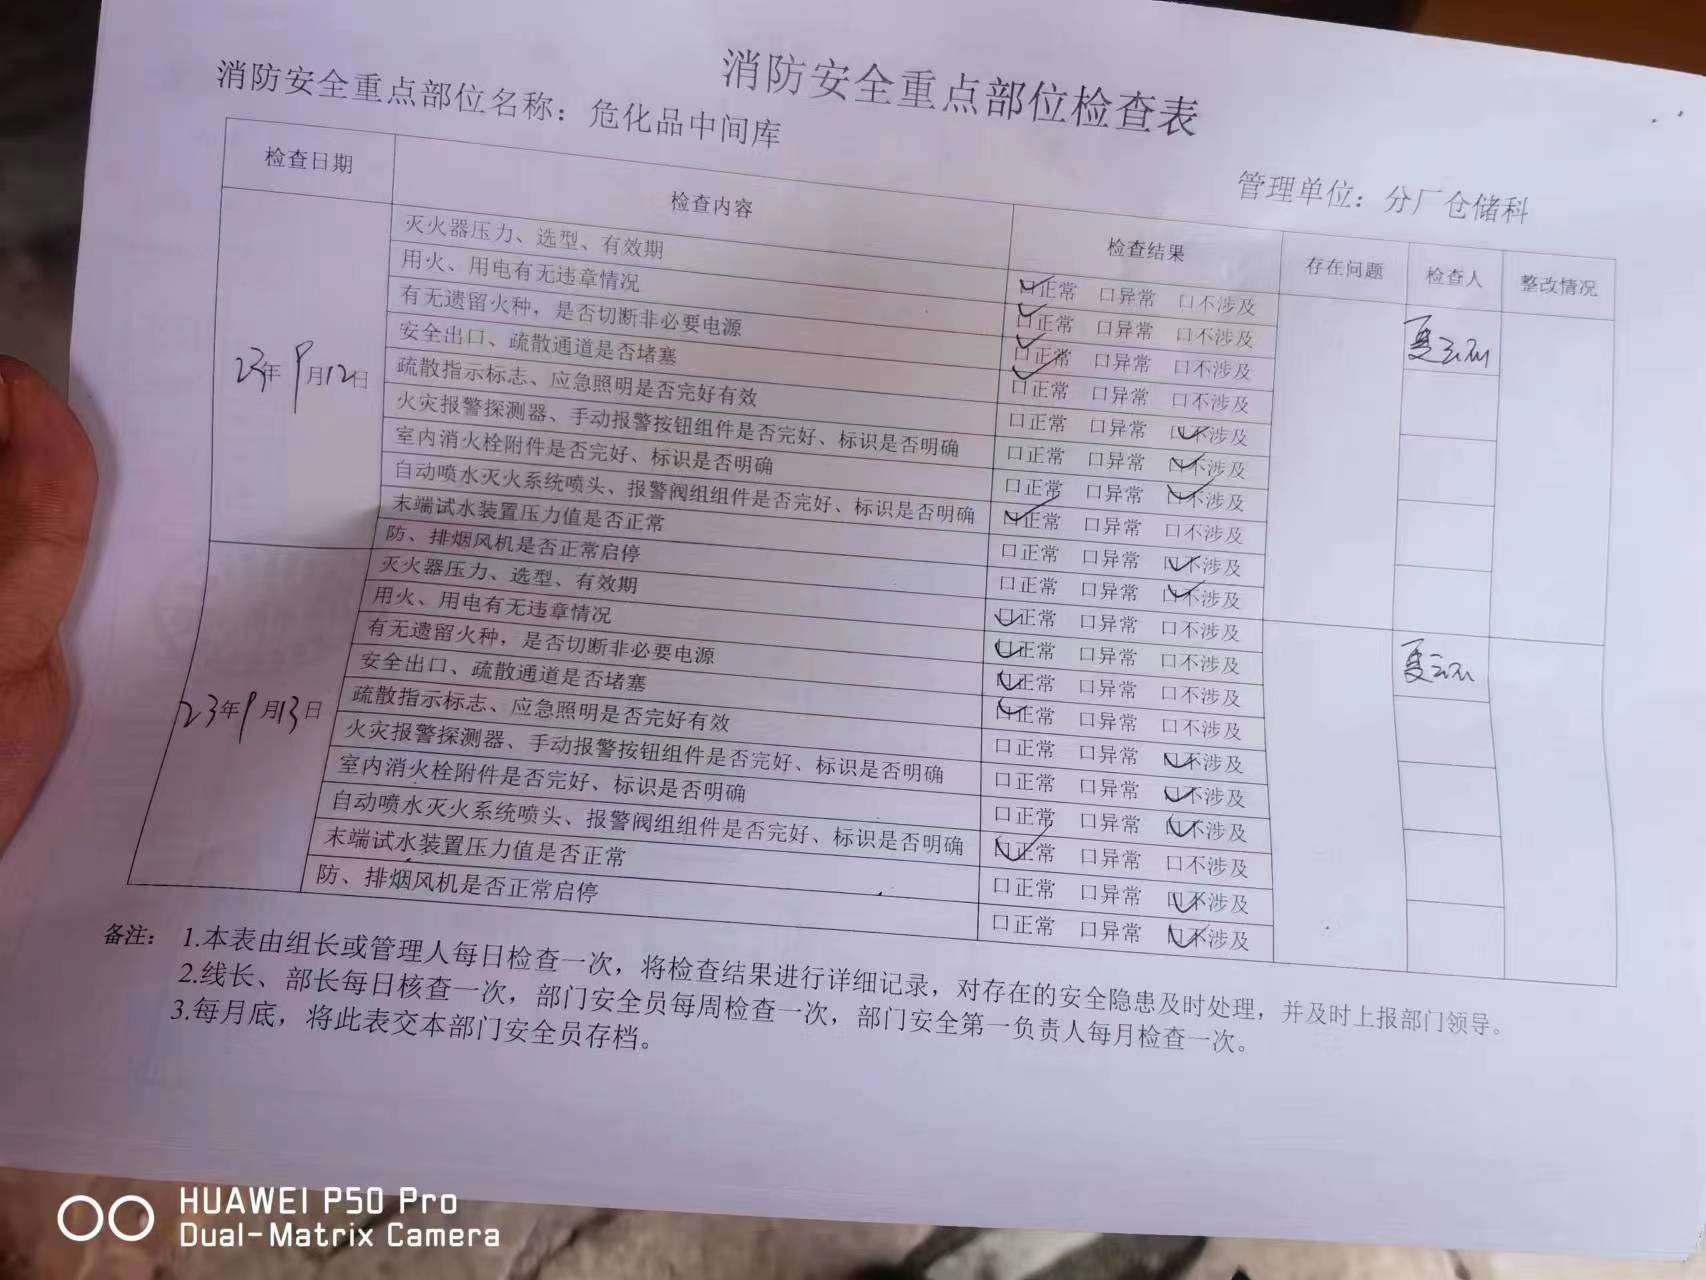 消防安全重点部位检查表
消防安全重点部位名称：危化品中间库
管理单位：分厂仓储科
检查日期 检查内容 检查结果 存在问题 检查人 整改情况
23年9月12日
灭火器压力、选型、有效期 ☑正常 □异常 □不涉及
用火、用电有无违章情况 ☑正常 □异常 □不涉及
有无遗留火种，是否切断非必要电源 ☑正常 □异常 □不涉及
安全出口、疏散通道是否堵塞 ☑正常 □异常 □不涉及
疏散指示标志、应急照明是否完好有效 □正常 □异常 ☑不涉及
火灾报警探测器、手动报警按钮组件是否完好、标识是否明确 □正常 □异常 ☑不涉及
室内消火栓附件是否完好、标识是否明确 □正常 □异常 ☑不涉及
自动喷水灭火系统喷头、报警阀组组件是否完好、标识是否明确 ☑正常 □异常 □不涉及
末端试水装置压力值是否正常 □正常 □异常 ☑不涉及
防、排烟风机是否正常启停 □正常 □异常 ☑不涉及
23年9月13日
灭火器压力、选型、有效期 ☑正常 □异常 □不涉及
用火、用电有无违章情况 ☑正常 □异常 □不涉及
有无遗留火种，是否切断非必要电源 ☑正常 □异常 □不涉及
安全出口、疏散通道是否堵塞 ☑正常 □异常 □不涉及
疏散指示标志、应急照明是否完好有效 □正常 □异常 ☑不涉及
火灾报警探测器、手动报警按钮组件是否完好、标识是否明确 □正常 □异常 ☑不涉及
室内消火栓附件是否完好、标识是否明确 □正常 □异常 ☑不涉及
自动喷水灭火系统喷头、报警阀组组件是否完好、标识是否明确 ☑正常 □异常 □不涉及
末端试水装置压力值是否正常 □正常 □异常 ☑不涉及
防、排烟风机是否正常启停 □正常 □异常 ☑不涉及
备注： 1.本表由组长或管理人每日检查一次，将检查结果进行详细记录，对存在的安全隐患及时处理，并及时上报部门领导。
2.线长、部长每日核查一次，部门安全员每周检查一次，部门安全第一负责人每月检查一次。
3.每月底，将此表交本部门安全员存档。
HUAWEI P50 Pro
Dual-Matrix Camera